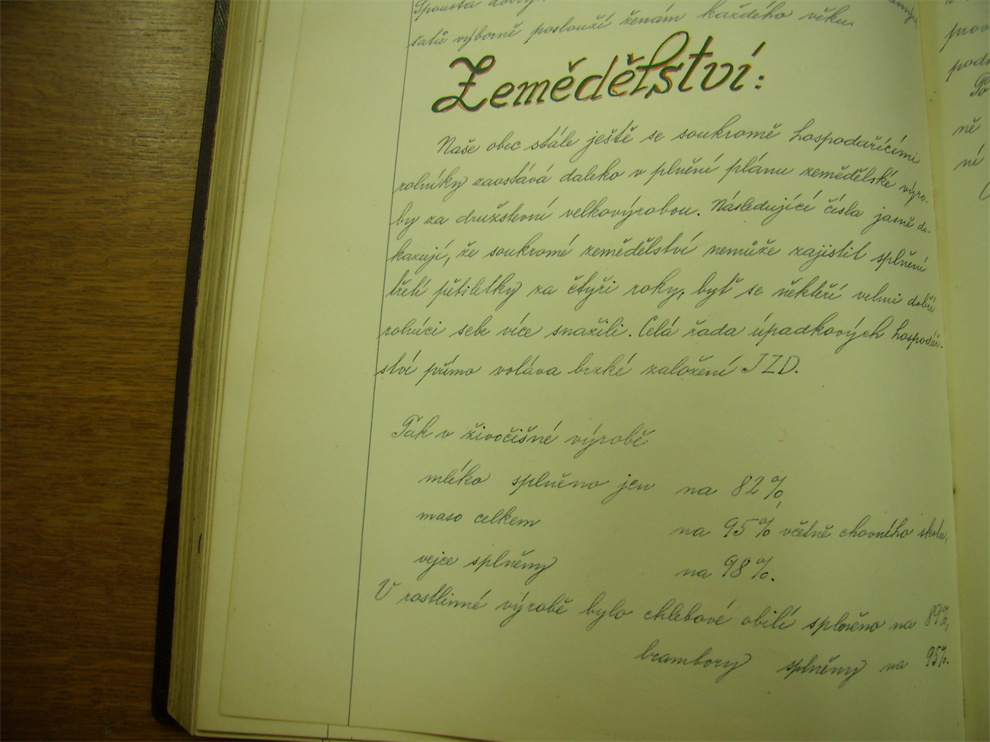 Spousta
šatů výborně poslouží ženám každého věku.
Zemědělství:
Naše obec stále ještě se soukromě hospodařícími
rolníky zaostává daleko v plnění plánu zemědělské výro-
by za družstevní velkovýrobou. Následující čísla jasně do-
kazují, že soukromé zemědělství nemůže zajistit splnění
třetí pětiletky za čtyři roky, byť se někteří velmi dobří
rolníci sebe více snažili. Celá řada úpadkových hospodář-
ství přímo volává brzké založení JZD.
Tak v živočišné výrobě
mléko splněno jen na 82%,
maso celkem na 95% včetně chovného skotu,
vejce splněny na 98%.
V rostlinné výrobě bylo chlebové obilí splněno na 89%,
brambory splněny na 95%.
prov
pod
ně
ní